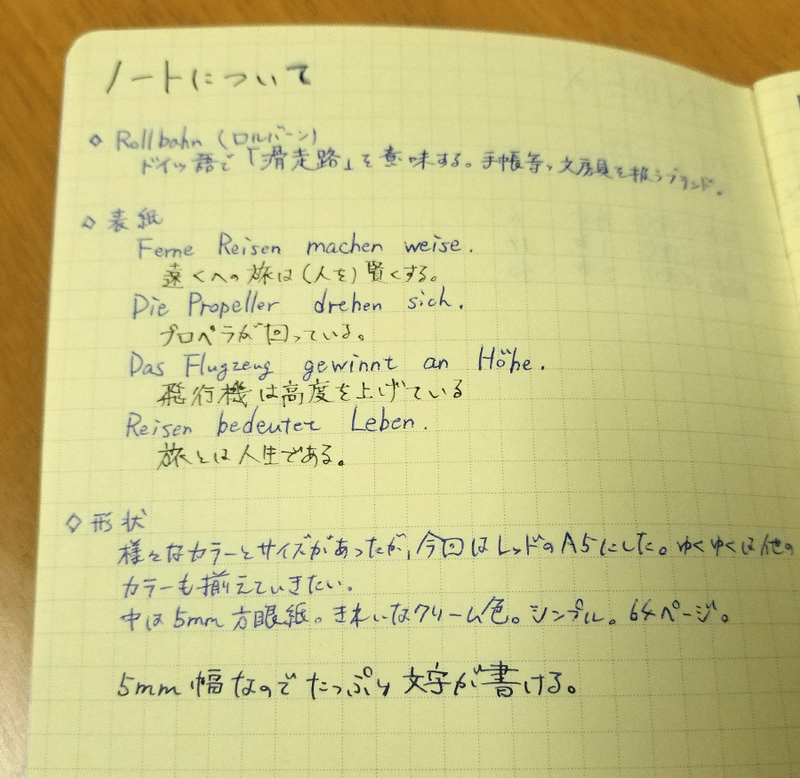 ノートについて
◇ Rollbahn (ロルバーン)
ドイツ語で「滑走路」を意味する。手帳等、文房具を扱うブランド。
◇ 表紙
Ferne Reisen machen weise.
遠くへの旅は(人を)賢くする。
Die Propeller drehen sich.
プロペラが回っている。
Das Flugzeug gewinnt an Höhe.
飛行機は高度を上げている
Reisen bedeutet Leben.
旅とは人生である。
◇ 形状
様々なカラーとサイズがあったが、今回はレッドのA5にした。ゆくゆくは他の
カラーも揃えていきたい。
中は5mm方眼紙。きれいなクリーム色。シンプル。64ページ。
5mm幅なのでたっぷり文字が書ける。